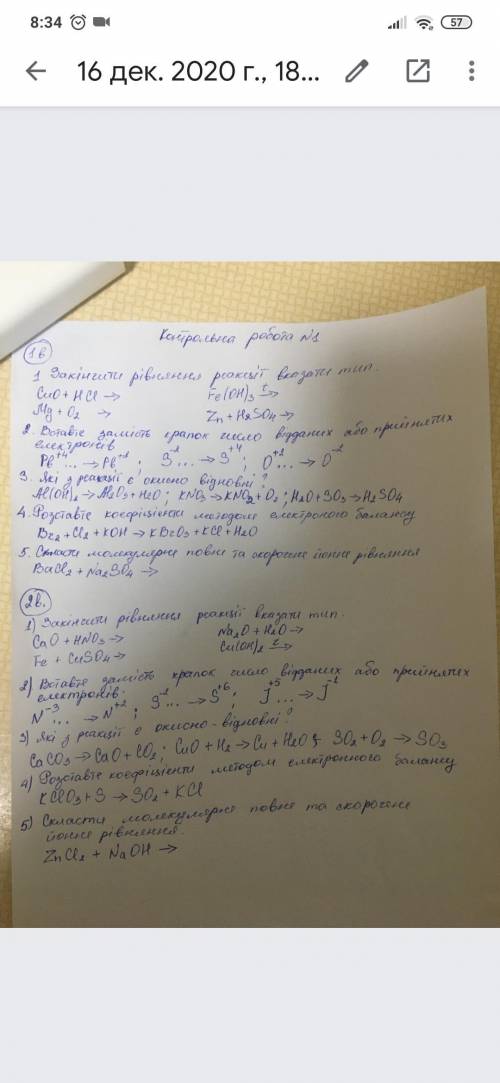 8:34
57
16 дек. 2020 г., 18...
Контрольна робота №1
1в
1 Закінчити рівняння реакції вказати тип.
CuO + HCl → Fe(OH)3 t→
Mg + O2 → Zn + H2SO4 →
2. Вставте замість крапок число відданих або прийнятих
електронів
Pb+4 ... → Pb+2 ; S-2 ... → S+4 ; O+2 ... → O-2
3. Які з реакції є окисно відновні?
Al(OH)3 → Al2O3 + H2O ; KNO3 → KNO2 + O2 ; H2O + SO3 → H2SO4
4. Розставте коефіцієнти методом електроного балансу
Br2 + Cl2 + KOH → KBrO3 + KCl + H2O
5. Скласти молекулярне повне та скорочене йонне рівняння
BaCl2 + Na2SO4 →
2в.
1) Закінчити рівняння реакції вказати тип.
CaO + HNO3 → Na2O + H2O →
Fe + CuSO4 → Cu(OH)2 t→
2) Вставте замість крапок число відданих або прийнятих
електронів.
N-3 ... → N+2 ; S-2 ... → S+6 ; J+5 ... → J-1
3) Які з реакції є окисно-відновні?
CaCO3 → CaO + CO2 ; CuO + H2 → Cu + H2O ; SO2 + O2 → SO3
4) Розставте коефіцієнти методом електронного балансу
KClO3 + S → SO2 + KCl
5) Скласти молекулярне повне та скорочене
йонне рівняння.
ZnCl2 + NaOH →